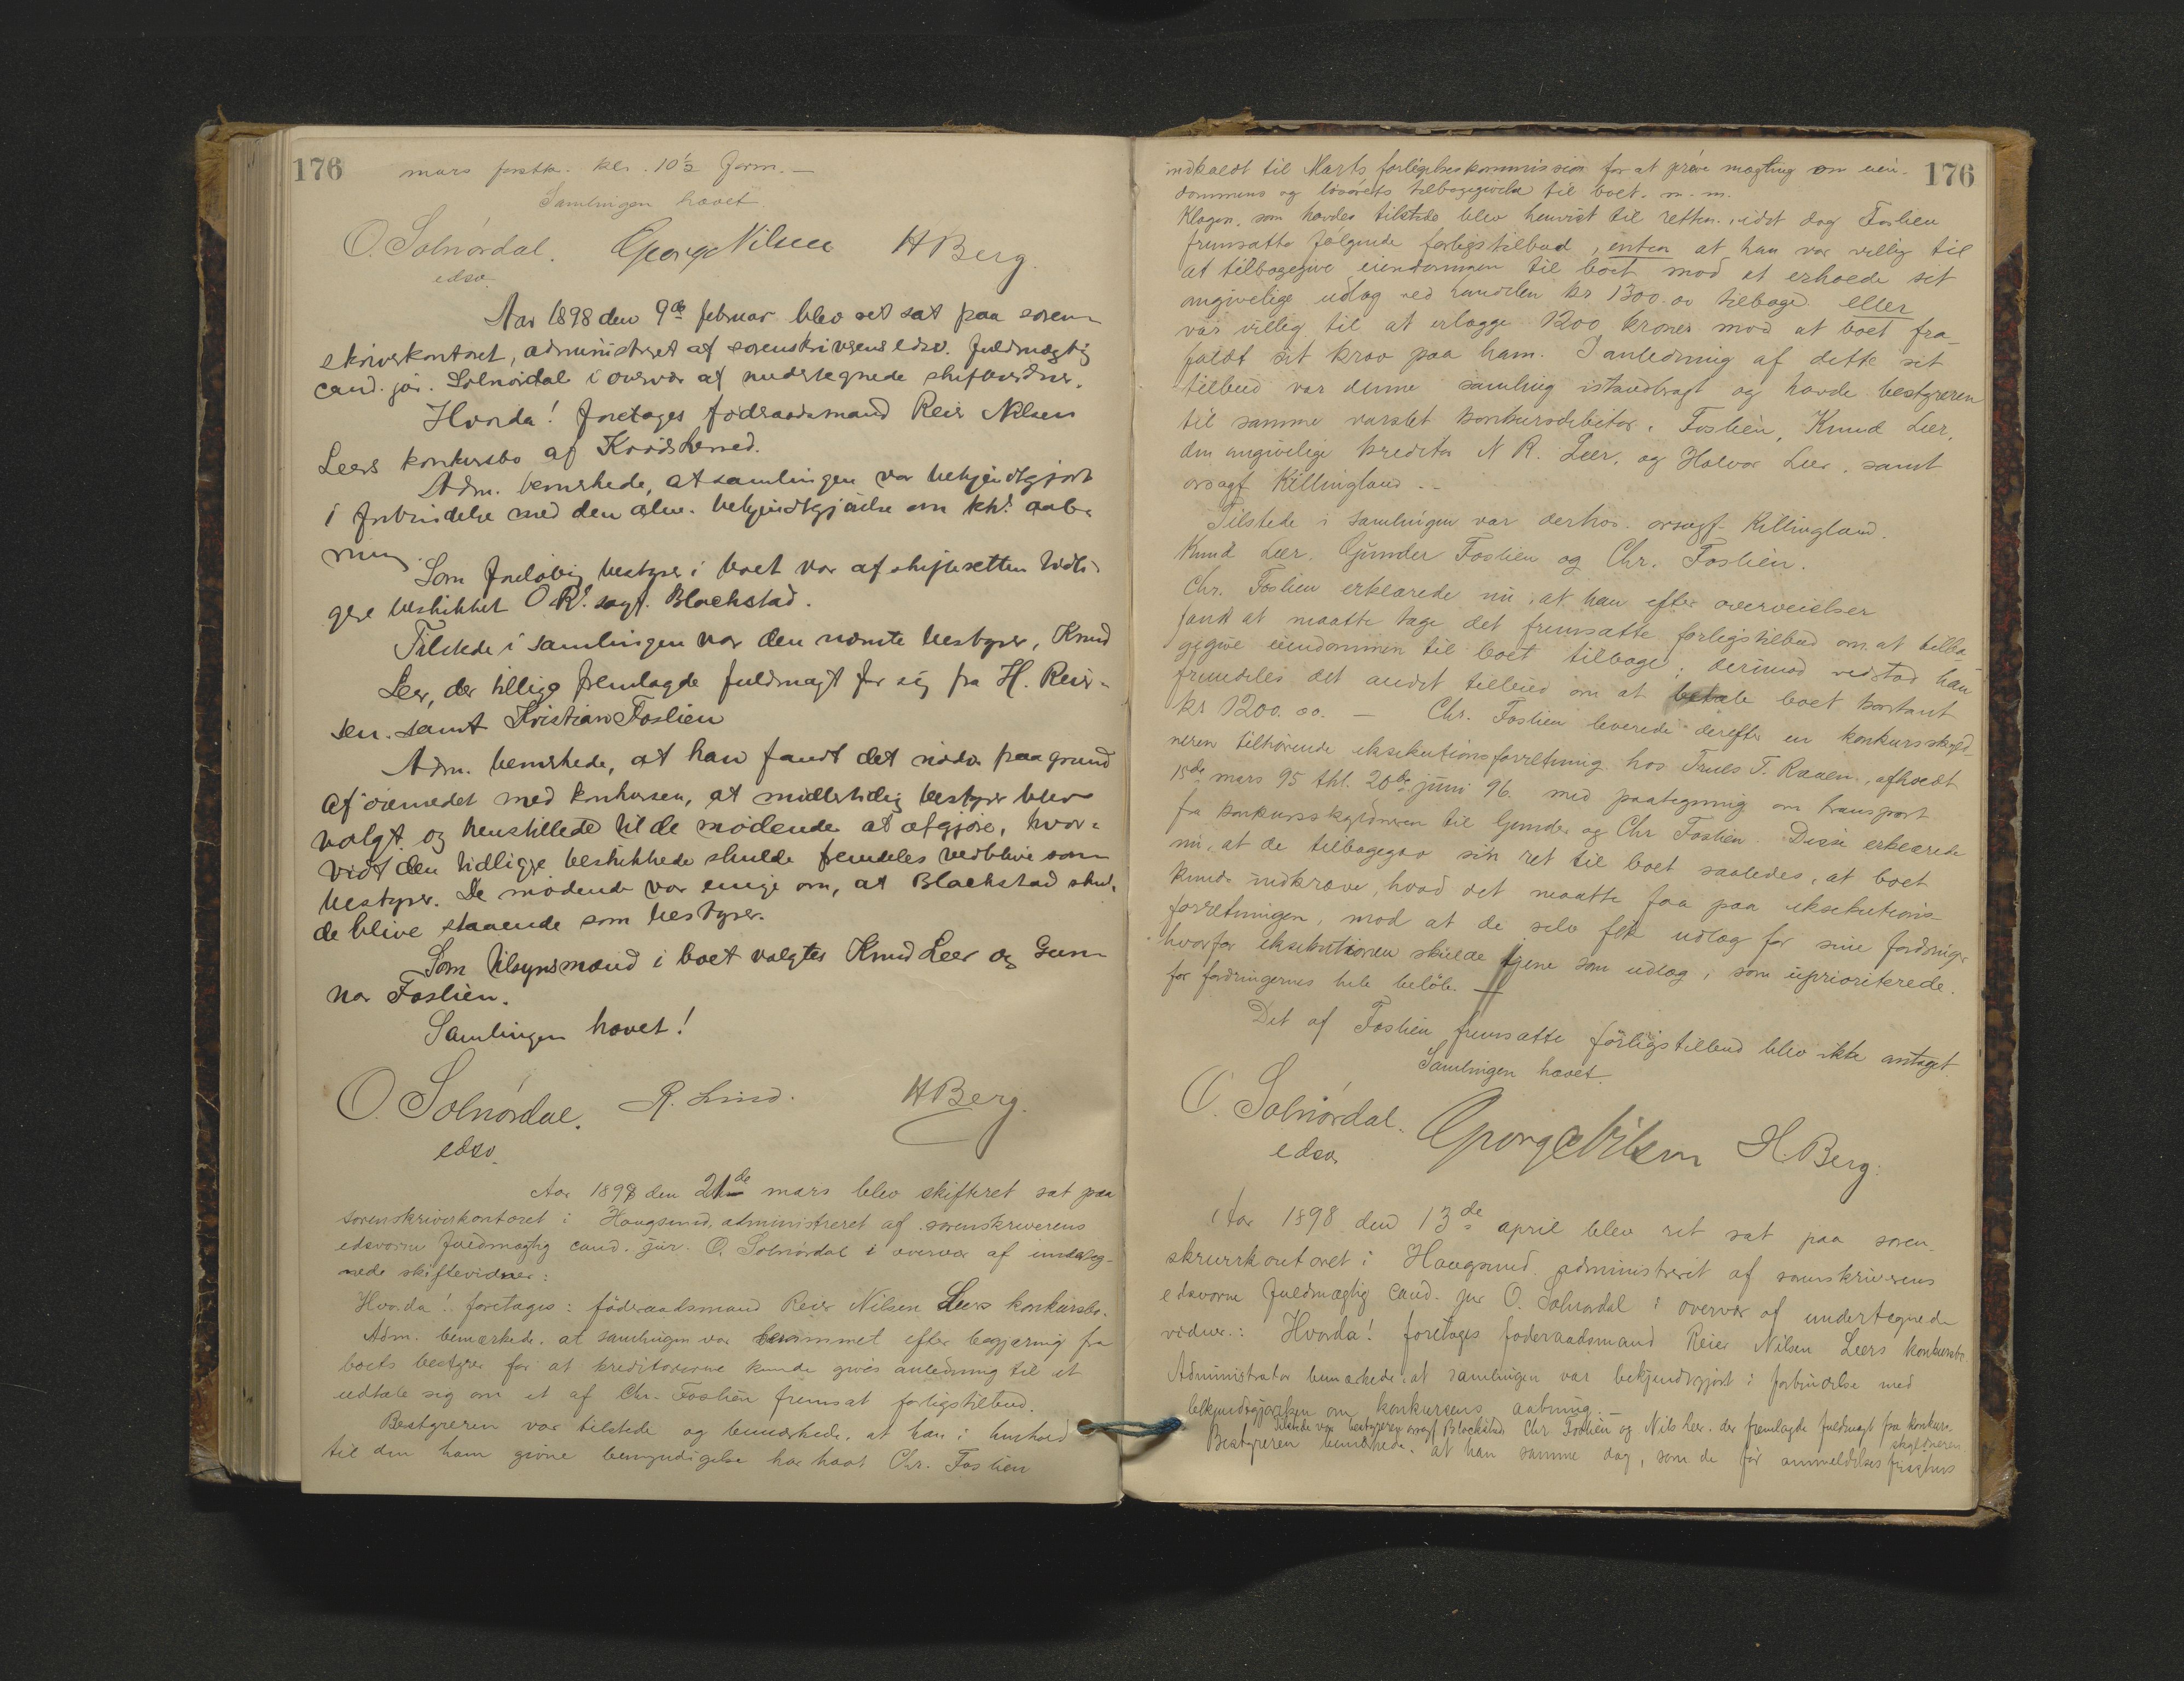 176
mars førstk. kl. 10½ form. —
Samlingen hævet.
O. Solnørdal. George Nilsen H Berg.
edsv.
Aar 1898 den 9de februar blev ret sat paa soren-
skriverkontoret, administreret af sorenskriverens edsv. fuldmægtig
cand. jur. Solnørdal i overvær af undertegnede skiftevidner.
Hvorda! foretagesføderaadsmand Reier Nilsen
Leers konkursbo af Krødsherred.
Adm. bemerkede, at samlingen var bekjendtgjort
i forbindelse med den alm. bekjendtgjørelse om kks aab-
ning.
Som foreløbig bestyrer i boet var af skifteretten tidli-
gere beskikket O.R. sagf. Blackstad.
Tilstede i samlingen var den nævnte bestyrer, Knud
Leer, der tillige fremlagde fuldmagt for sig fra H. Reier-
sen. samt Kristian Foslien
Adm. bemerkede, at han fandt det nødv. paa grund
af øiemedet med konkursen, at midlertidig bestyrer blev
valgt. og henstillede til de mødende at afgjøre, hvor-
vidt den tidligere beskikkede skulde fremdeles vedblive som
bestyrer. De mødende var enige om, at Blackstad skul-
de blive staaende som bestyrer.
Som tilsynsmænd i boet valgtes Knud Leer og Gun-
nar Foslien.
Samlingen hævet!
O. Solnørdal. R. Lind. H Berg.
edsv.
Aar 1898 den 21de mars blev skifteret sat paa
sorenskriverkontoret i Hougsund, administreret af sorenskriverens
edsvorne fuldmægtig cand. jur. O. Solnørdal i overvær af underteg-
nede skiftevidner:
Hvorda! foretages: føderaadsmand Reier Nilsen Leers konkursbo.
Adm. bemærkede, at samlingen var berammet efter begjæring fra
boets bestyrer for at kreditorerne kunde gives anledning til at
udtale sig om et af Chr. Foslien fremsat forligstilbud.
Bestyreren var tilstede og bemærkede, at han i henhold
til den ham givne bemyndigelse har havt Chr. Foslien
176
indkaldt til Marts forligelseskommission for at prøve mægling om eien-
dommens og løsørets tilbagegivelse til boet. m. m.
Klagen, som havdes tilstede blev henvist til retten, idet dog Foslien
fremsatte følgende forligstilbud, enten at han var villig til
at tilbagegive eiendommen til boet mod at erholde sit
angivelige udlæg ved handelen kr 1300.00 tilbage eller
var villig til at erlægge 1200 kroner mod at boet fra-
faldt sit krav paa ham. I anledning af dette sit
tilbud var denne samling istandbragt og havde bestyreren
til samme varslet konkursdebitor, Foslien, Knud Leer,
den angivelige kreditor N R. Leer, og Halvor Leer, samt
orsagf. Killingland. —
Tilstede i samlingen var derhos orsagf. Killingland.
Knud Leer. Gunder Foslien og Chr. Foslien.
Chr. Foslien erklærede nu, at han efter overveielser
fandt at maatte tage det fremsatte forligstilbud om at tilba-
gegive eiendommen til boet tilbage; derimod vedstod han
fremdeles det andet tilbud om at betale boet kontant
kr 1200.00. — Chr. Foslien leverede derefter en konkursskyld-
neren tilhørende eksekutionsforretning hos Truls T. Raaen, afholdt
15de mars 95 thl. 20de juni 96. med paategning om transport
fra konkursskyldneren til Gunder og Chr Foslien. Disse erklærede
nu, at de tilbagegav sin ret til boet saaledes, at boet
kunde indkræve, hvad det maatte faa paa eksekutions-
forretningen, mod at de selv fik udlæg for sine fordringer
hvorfor eksekutionen skulde tjene som udlæg, som uprioriterede.
for fordringernes hele beløb. —
Det af Foslien fremsatte forligstilbud blev ikke antaget.
Samlingen hævet.
O. Solnørdal. George Nilsen H. Berg.
edsv.
Aar 1898 den 13de april blev ret sat paa soren-
skriverkontoret i Hougsund administreret af sorenskriverens
edsvorne fuldmægtig cand. jur O. Solnørdal i overvær af undertegnede
vidner.: Hvorda! foretages føderaadsmand Reier Nilsen Leers konkursbo
Administrator bemærkede, at samlingen var bekjendtgjort i forbindelse med
bekjendtgjørelsen om konkursens aabning. —
Tilstede var bestyreren orsagf Blackstad Chr Foslien og Nils Leer, der fremlagde fuldmagt fra konkurs-
skyldneren.
Bestyreren bemærkede, at han samme dag, som de før anmeldelsesfristens